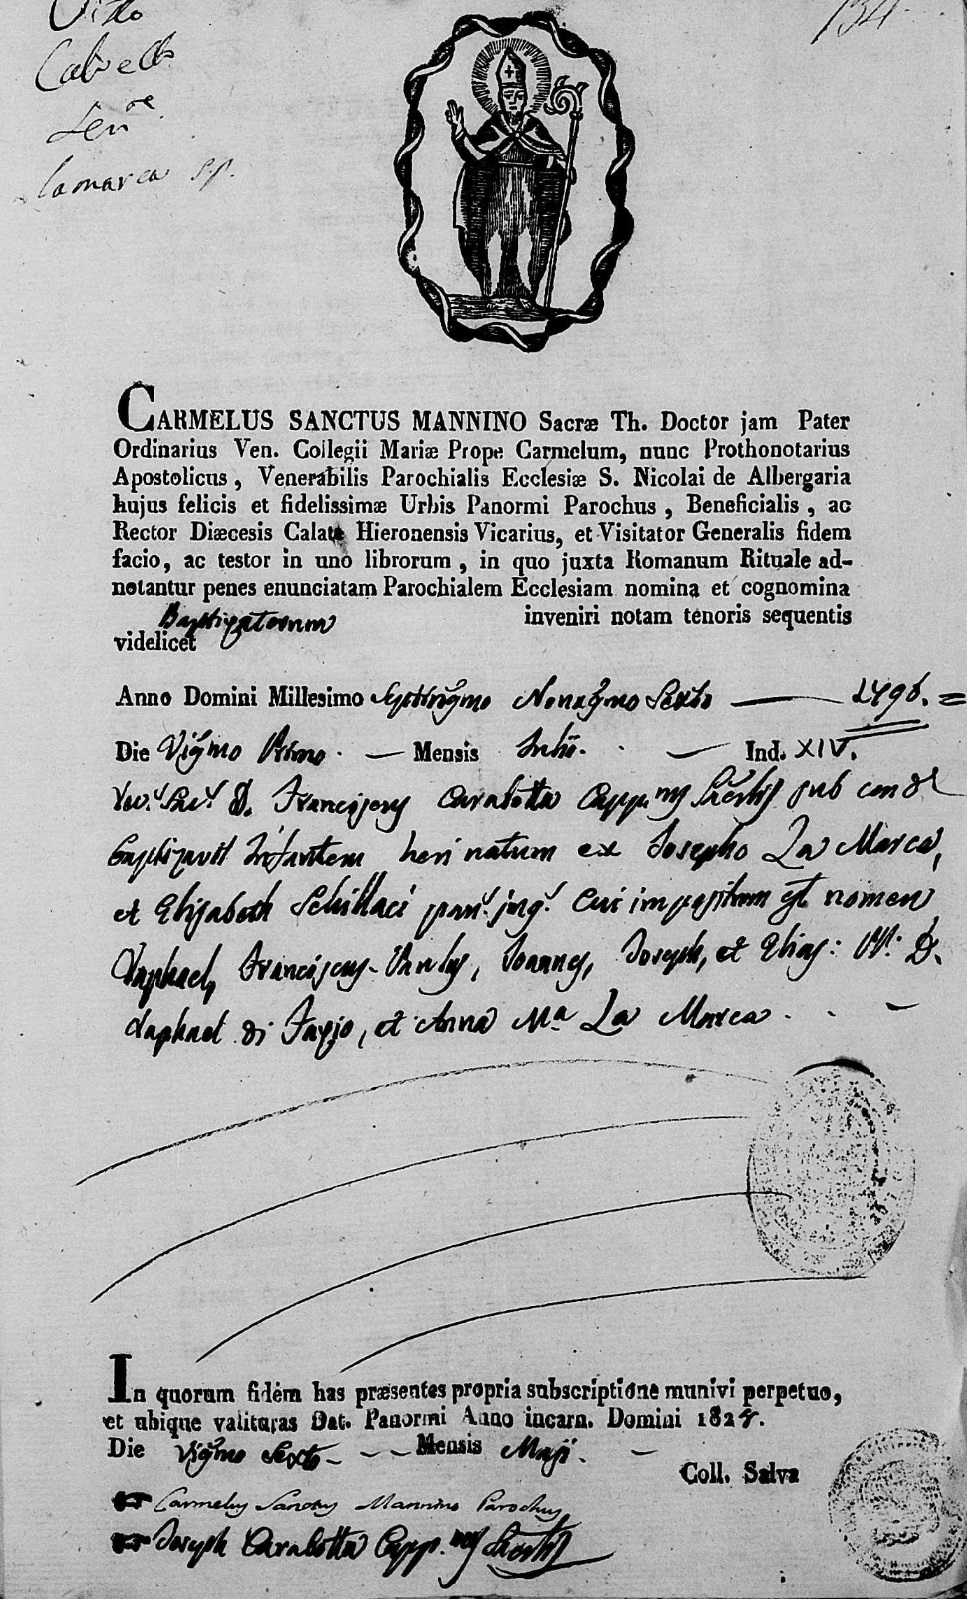 Vitto
134.
Cabrella
Sen.re
Lamarca sp.
CARMELUS SANCTUS MANNINO Sacræ Th. Doctor jam Pater
Ordinarius Ven. Collegii Mariæ Prope Carmelum, nunc Prothonotarius
Apostolicus, Venerabilis Parochialis Ecclesiæ S. Nicolai de Albergaria
hujus felicis et fidelissimæ Urbis Panormi Parochus, Beneficialis, ac
Rector Diæcesis Calata Hieronensis Vicarius, et Visitator Generalis fidem
facio, ac testor in uno librorum, in quo juxta Romanum Rituale ad-
notantur penes enunciatam Parochialem Ecclesiam nomina et cognomina
Baptizatorum inveniri notam tenoris sequentis
videlicet
Anno Domini Millesimo Septingmo Nonagmo Sexto — 1796. =
Die Vigmo Primo. — Mensis Julii. — Ind. XIV.
Rev. Sac. D. Franciscus Carabotta Cappnus Sacrlis sub cond
baptizavit Infantem heri natum ex Josepho La Marca,
et Elisabeth Schillaci jug. Cui impositum est nomen
Raphael, Franciscus-Paulus, Joannes, Joseph, et Elias: PP. D.
Raphael di Fazio, et Anna Ma La Marca. . —
In quorum fidem has præsentes propria subscriptione munivi perpetuo,
et ubique valituras Dat. Panormi Anno incarn. Domini 1824.
Die Vigmo Sexto - — Mensis Maji. —
Coll. Salva
Carmelus Sanctus Mannino Parochus
Joseph Carabotta Capp.nus Sacrlis